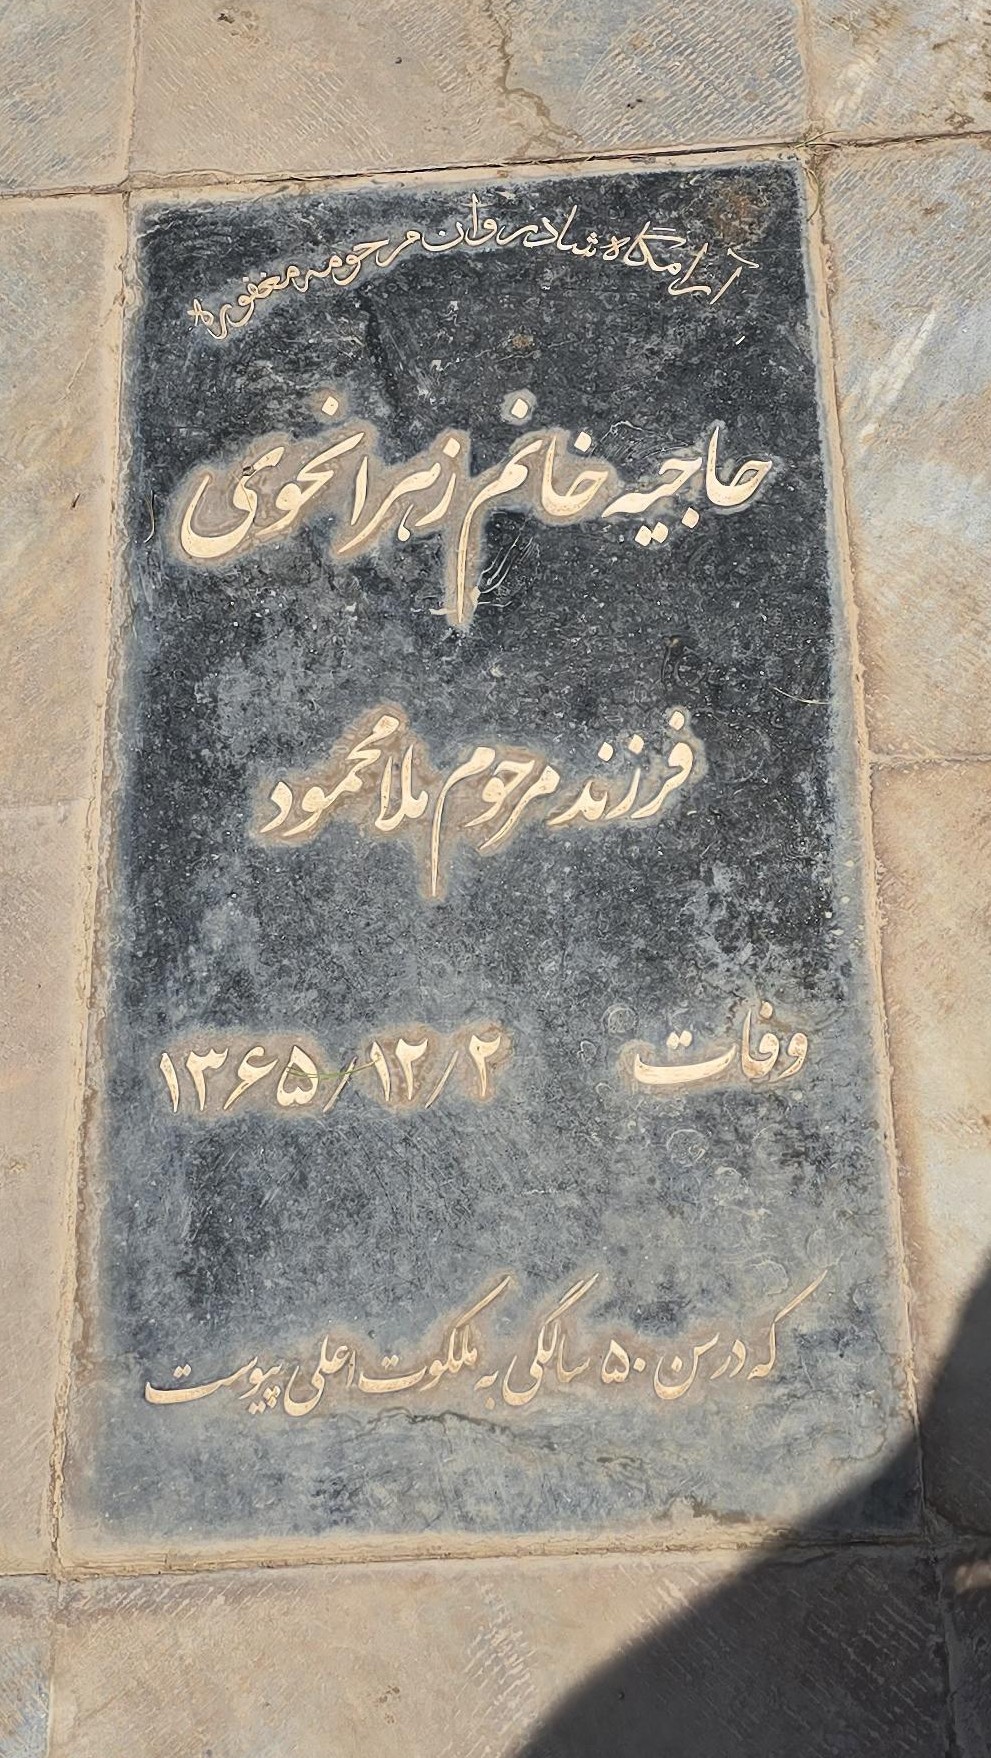 آرامگاه شادروان مرحومه مغفوره
حاجیه خانم زهرا نحوی
فرزند مرحوم ملا محمود
وفات ۱۳۶۵/۱۲/۲
که در سن ۵۰ سالگی به ملکوت اعلی پیوست